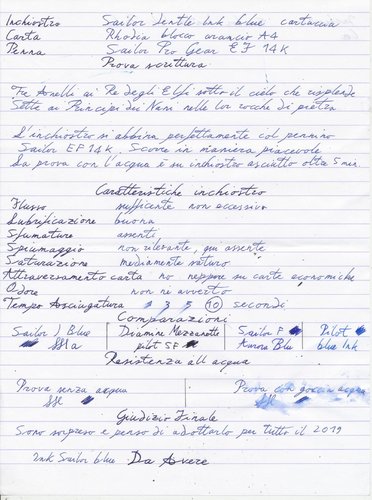 Inchiostro Sailor Jentle Ink blue cartuccia
Carta Rhodia bloco arancio A4
Penna Sailor Pro Gear EF 14K
Prova scrittura
Tre Anelli ai Re degli Elfi sotto il cielo che risplende
Sette ai Principi dei Nani nelle lor rocche di pietra
L'inchiostro si abbina perfettamente col pennino
Sailor EF 14K. Scorre in maniera piacevole
La prova con l'acqua è su inchiostro asciutto oltre 5 min
Caratteristiche inchiostro
Flusso sufficente non eccessivo
Lubrificazione buona
Sfumature assenti
Spiumaggio non rilevante, quasi assente
Saturazione mediamente saturo
Attraversamento carta no neppure su carte economiche
Odore non ne avverto
Tempo Asciugatura 1 3 5 10 secondi
Comparazioni
Sailor J Blue Diamine Mezzanotte Sailor F Pilot
pilot SF Aurora Blu blue Ink
Resistenza all acqua
Prova senza acqua Prova con goccia acqua
Giudizio Finale
Sono sorpreso e penso di adottarlo per tutto il 2019
Ink Sailor blue Da Avere